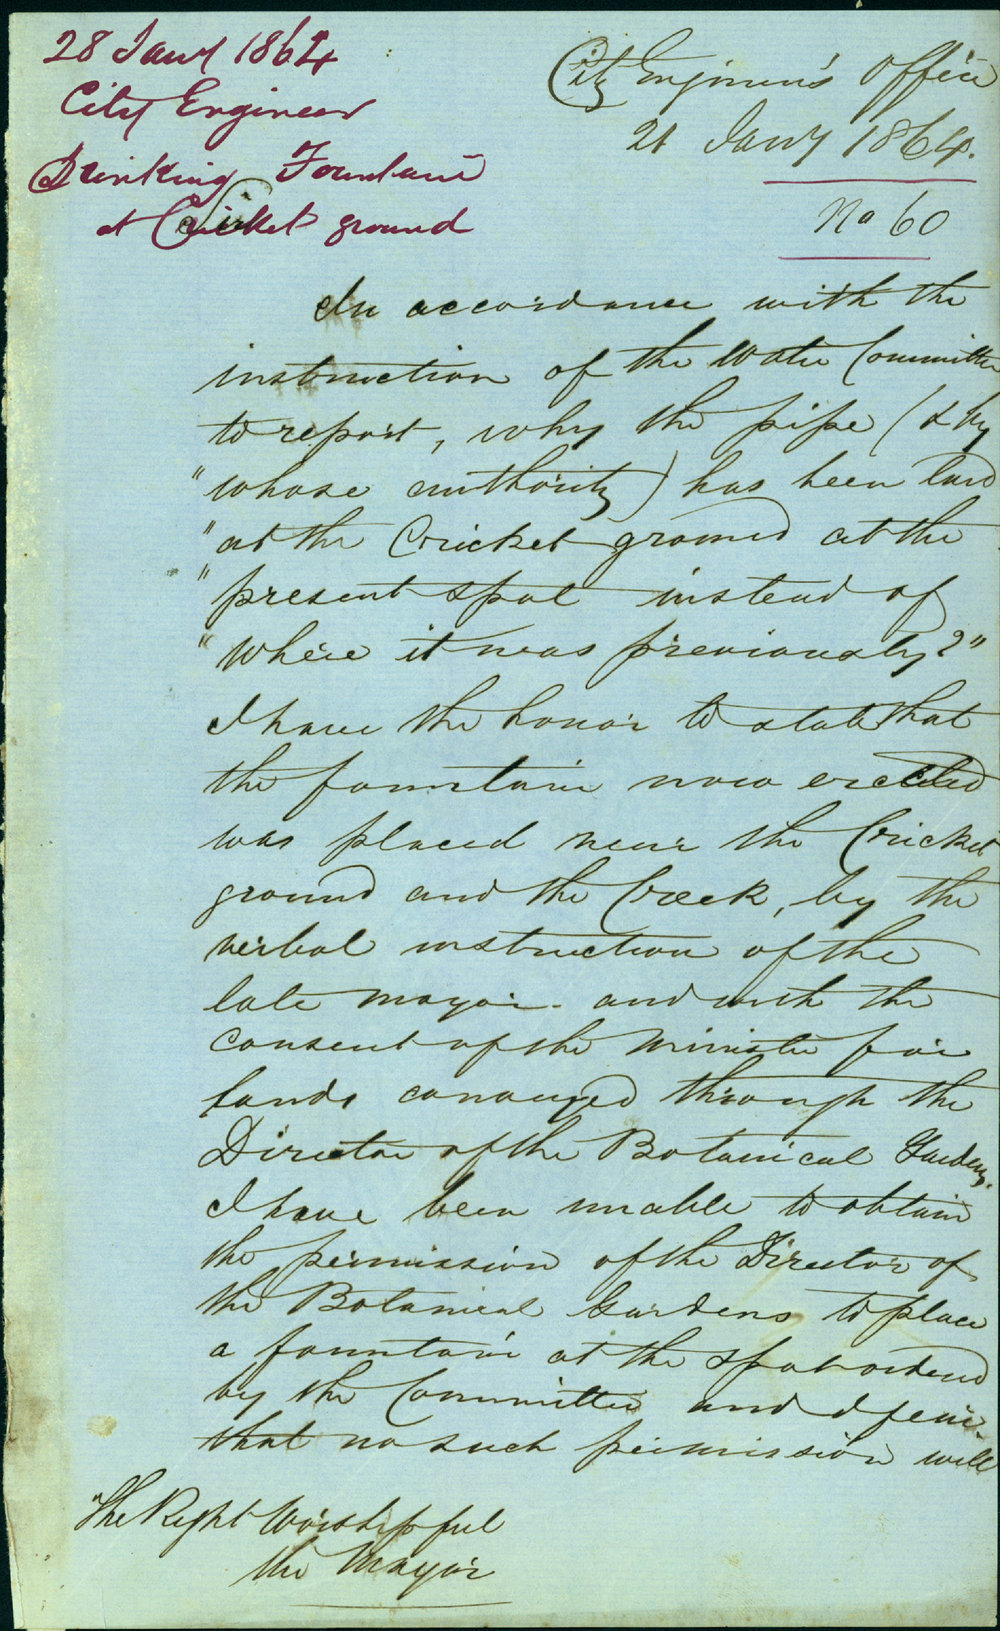 28 Jany 1864
City Engineer
Drinking Fountain
at Cricket ground
City Engineer's Office
21 Jany 1864.
No 60
In accordance with the
instruction of the Water Committee
to report, why the pipe (& by
"whose authority) has been laid
"at the Cricket ground at the
"present spot instead of
"where it was previously?"
I have the honor to state that
the fountain now erected
was placed near the Cricket
ground and the Creek, by the
verbal instruction of the
late Mayor. and with the
consent of the Minister for
Lands conveyed through the
Director of the Botanical Gardens.
I have been unable to obtain
the permission of the Director of
the Botanical Gardens to place
a fountain at the spot ordered
by the Committee and I fear
that no such permission will
The Right Worshipful
the Mayor